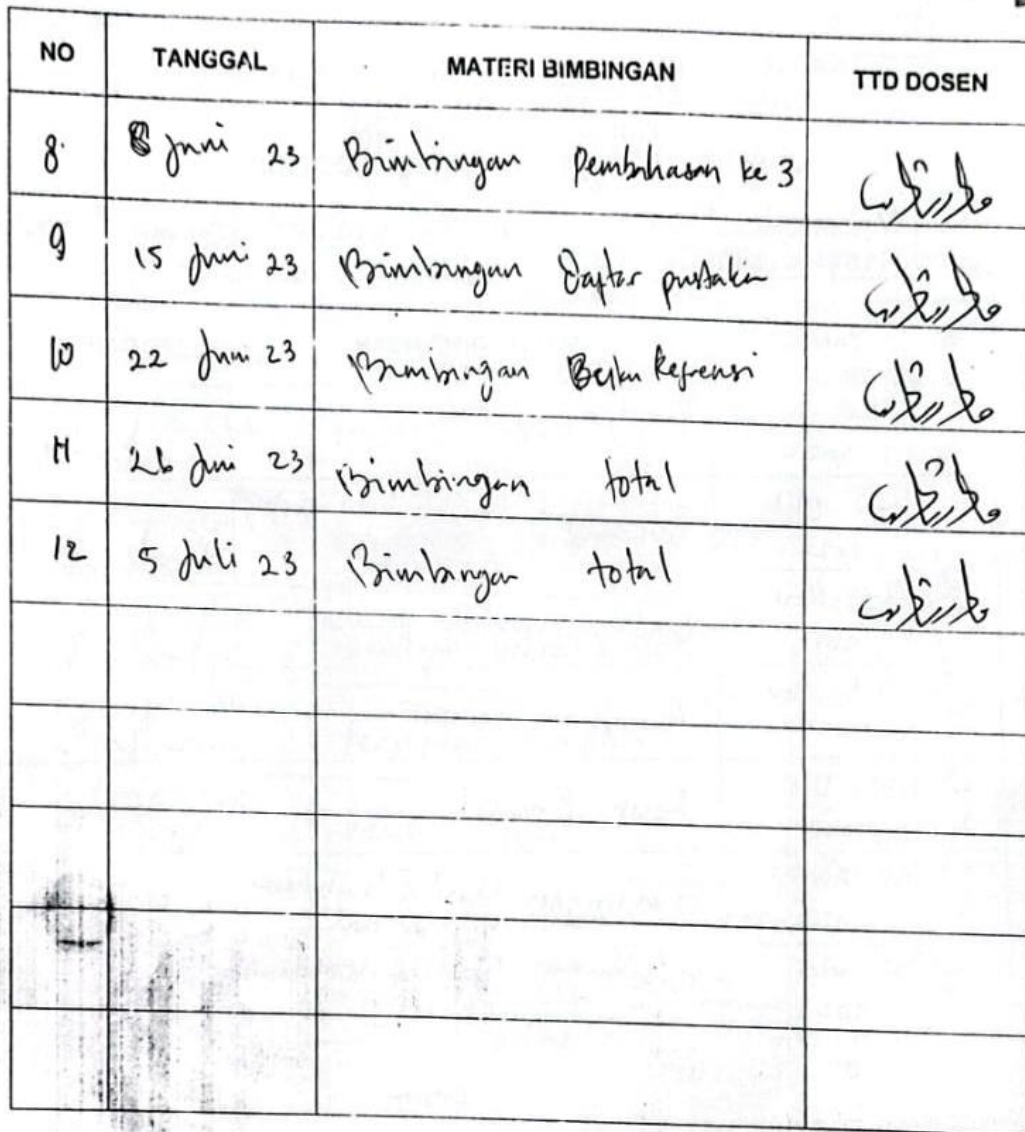 NO TANGGAL MATERI BIMBINGAN TTD DOSEN
8. 8 Juni 23 Bimbingan Pembahasan ke 3
9 15 Juni 23 Bimbingan Daftar pustaka
10 22 Juni 23 Bimbingan
11 26 Juni 23 Bimbingan total
12 5 Juli 23 Bimbingan total